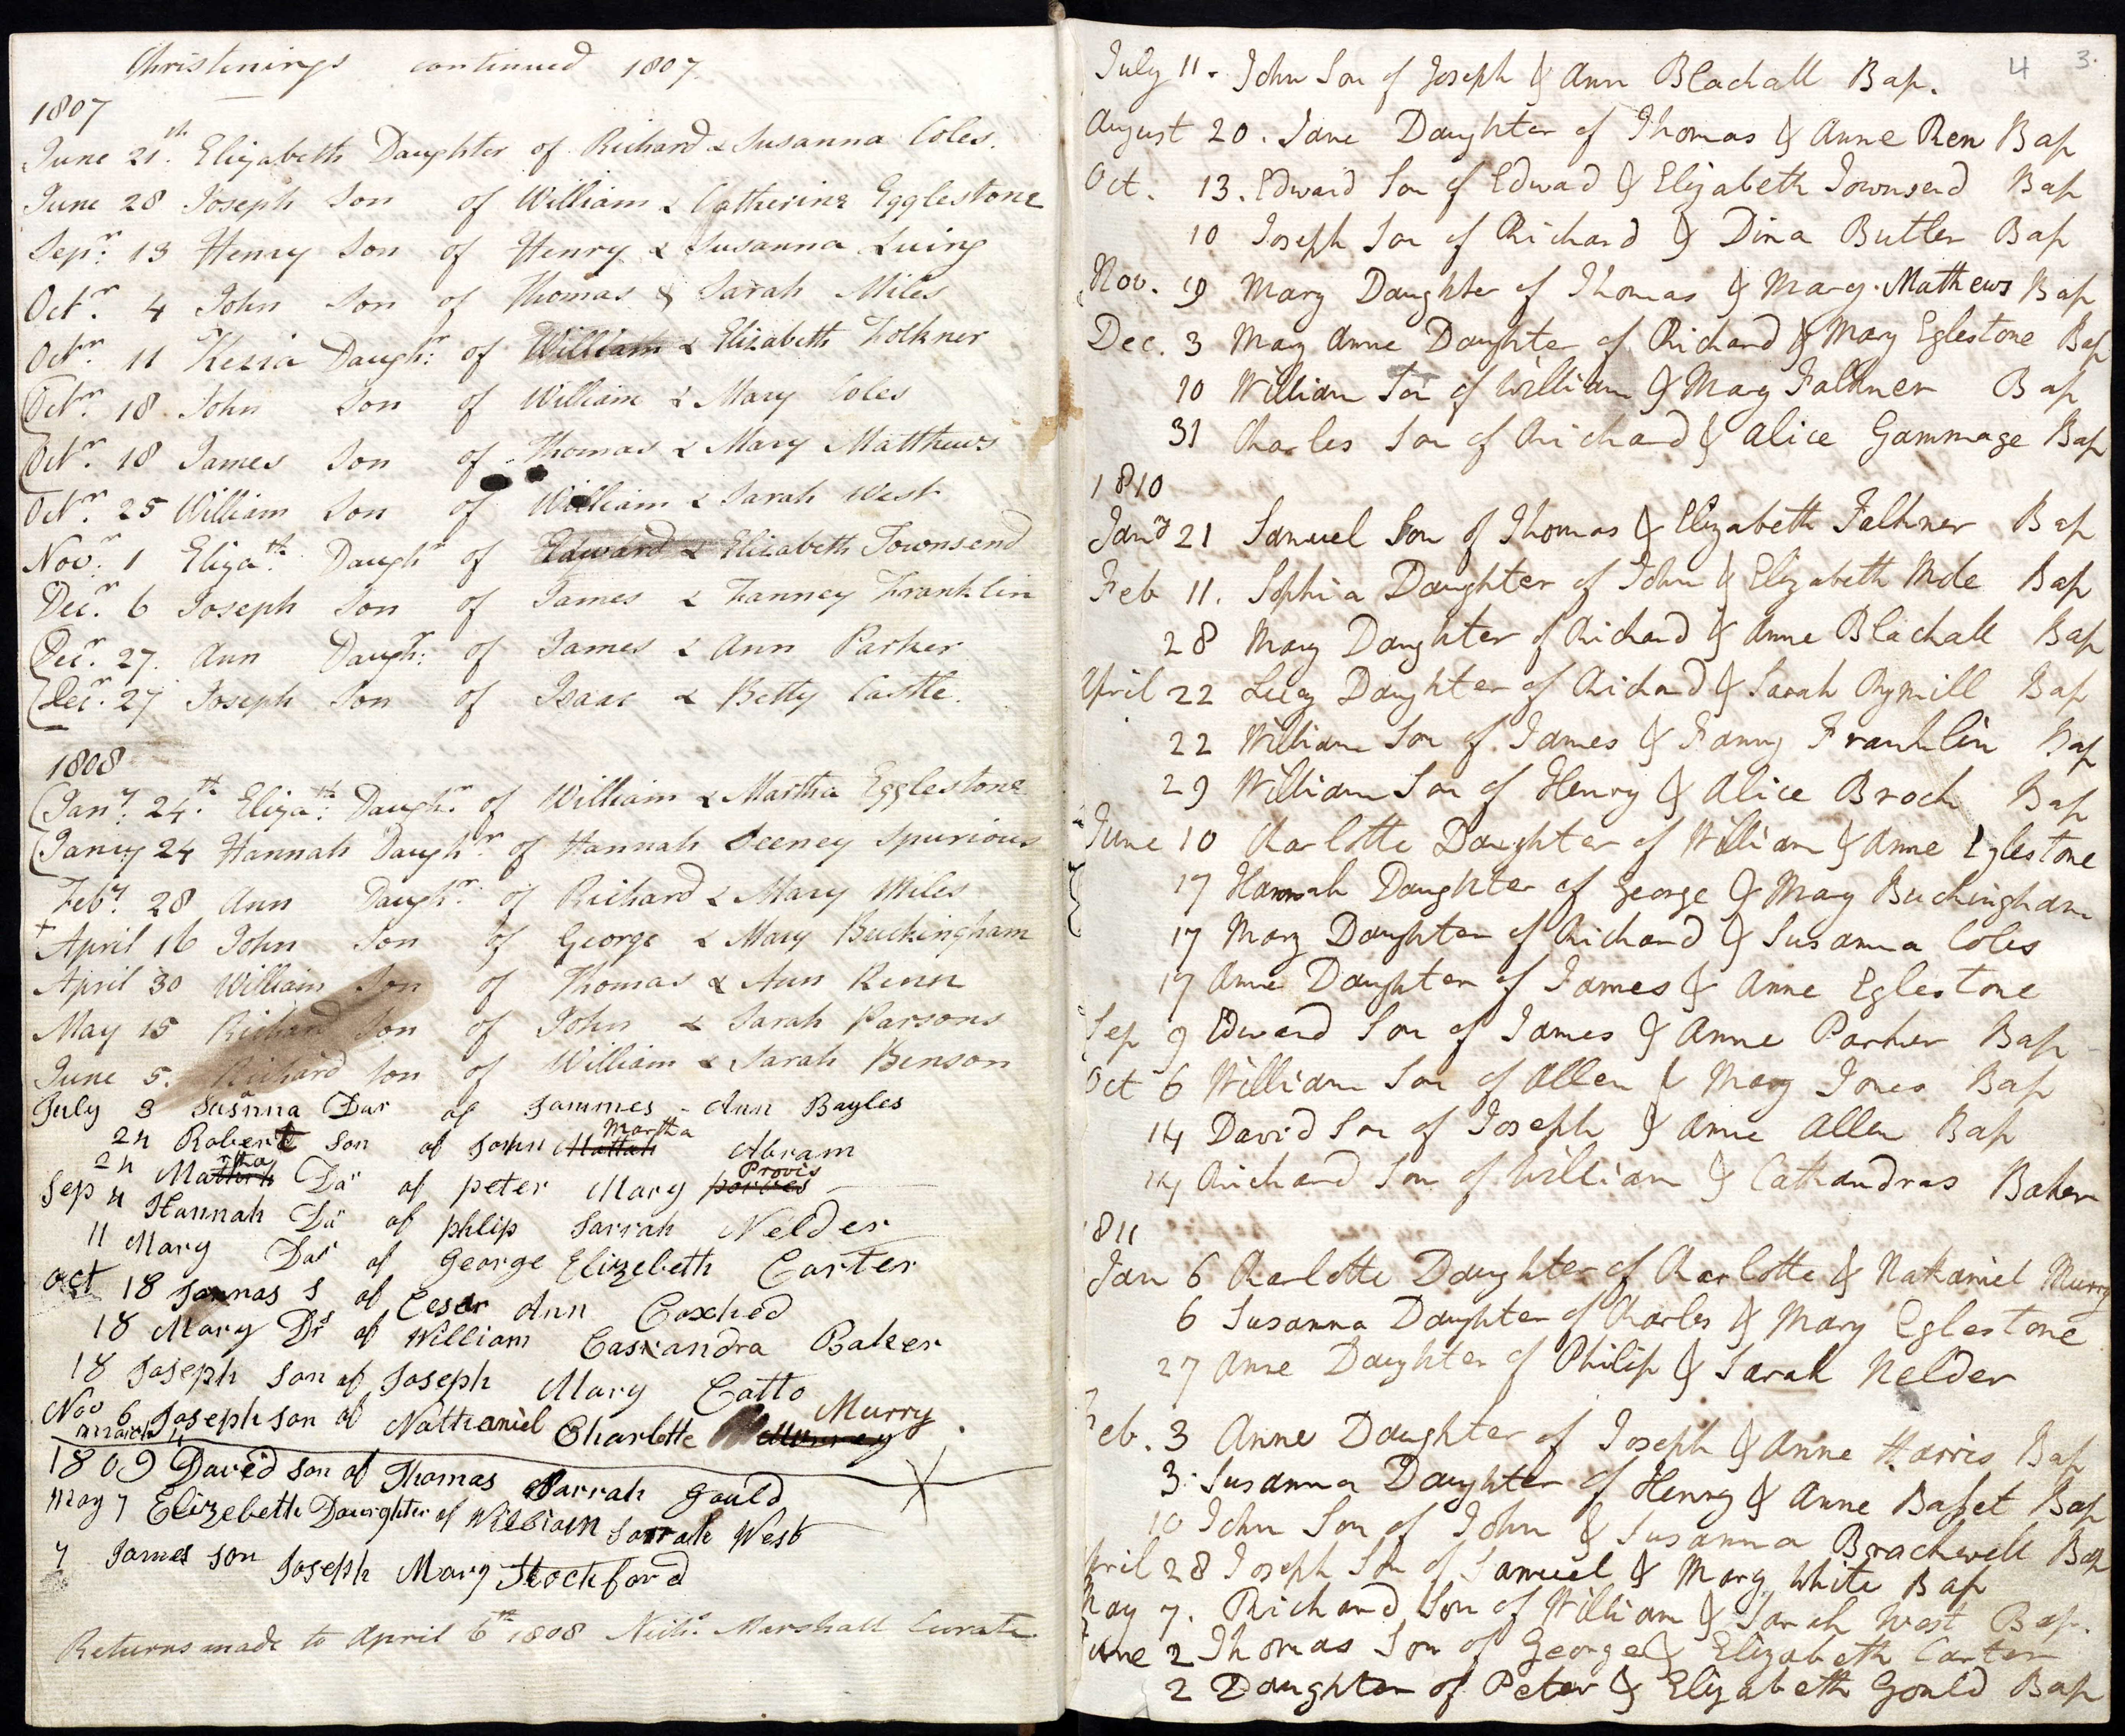 Christenings continued 1807
1807
June 21th. Elizabeth Daughter of Richard & Susanna Coles.
June 28 Joseph Son of William & Catherine Egglestone
Sepr. 13 Henry Son of Henry & Susanna Luing
Octr. 4 John Son of Thomas & Sarah Miles
Octr. 11 Kezia Daughr. of William & Elizabeth Folkner
Octr. 18 John Son of William & Mary Coles
Octr. 18 James Son of Thomas & Mary Matthews
Octr. 25 William Son of William & Sarah West
Novr. 1 Elizath. Daughr of Edward & Elizabeth Townsend
Decr. 6 Joseph Son of James & Fanney Franklin
Decr. 27. Ann Daughr. of James & Ann Parker
Decr. 27 Joseph Son of Isaac & Betty Castle.
1808
Jany. 24th. Elizath. Daughr. of William & Martha Egglestone
Janry 24 Hannah Daughr. of Hannah Deeney Spurious
Feby. 28 Ann Daughr. of Richard & Mary Miles
+ April 16 John Son of George & Mary Buckingham
April 30 William Son of Thomas & Ann Renn
May 15 Richard Son of John & Sarah Parsons
June 5. Richard Son of William & Sarah Benson
July 3 Susanna Dar of Jammes - Ann Bayles
24 Robert son of John Martha Abram
24 Martha Dar of peter Mary Provis
Sep 4 Hannah Dar of phlip Sarrah Nelder
11 Mary Dar of George Elizebeth Carter
Oct 18 s of Cesar Ann Coxhed
18 Mary Dr of William Cassandra Baker
18 Joseph Son of Joseph Mary Catto
Nov 6 Joseph son of Nathaniel Charlotte Murry
march 4
1809 David son of Thomas Sarrah Gould
may 7 Elizebeth Daurghter of William Sarrah West
7 James son Joseph Mary Stockford
Returns made to April 6th 1808 Marshall Curate
4 3.
July 11. John Son of Joseph & Ann Blachall Bap.
August 20. Jane Daughter of Thomas & Anne Ren Bap
Oct. 13. Edward Son of Edwad & Elizabeth Townsend Bap
10 Joseph Son of Richard & Dina Butler Bap
Nov. 19 Mary Daughter of Thomas & Mary. Mathews Bap
Dec. 3 Mary Anne Daughter of Richard & Mary Eglestone Bap
10 William Son of William & Mary Falkner Bap
31 Charles Son of Richard & Alice Gammage Bap
1810
Jany 21 Samuel Son of Thomas & Elizabeth Falkner Bap
Feb 11. Sophia Daughter of John & Elizabeth Bap
28 Mary Daughter of Richard & Anne Blachall Bap
April 22 Lucy Daughter of Richard & Sarah Rymill Bap
22 William Son of James & Fanny Franklin Bap
29 William Son of Henry & Alice Broch Bap
June 10 Charlotte Daughter of William & Anne Eglestone
17 Hannah Daughter of George & Mary Buckingham
17 Mary Daughter of Richard & Susanna Coles
17 Anne Daughter of James & Anne Eglestone
Sep 9 Edward Son of James & Anne Parker Bap
Oct 6 William Son of Allen & Mary Jones Bap
14 David Son of Joseph & Anne Allen Bap
14 Richard Son of William & Cathandras Baker
1811
Jan 6 Charlotte Daughter of Charlotte & Nathaniel Murry
6 Susanna Daughter of Charles & Mary Eglestone
27 Anne Daughter of Philip & Sarah Nelder
Feb. 3 Anne Daughter of Joseph & Anne Harris Bap
3. Susanna Daughter of Henry & Anne Basset Bap
10 John Son of John & Susanna Brachwell Bap
April 28 Joseph Son of Samuel & Mary White Bap
May 7. Richard Son of William & Sarah West Bap.
June 2 Thomas Son of George & Elizabeth Carter
2 Daughter of Peter & Elizabeth Gould Bap